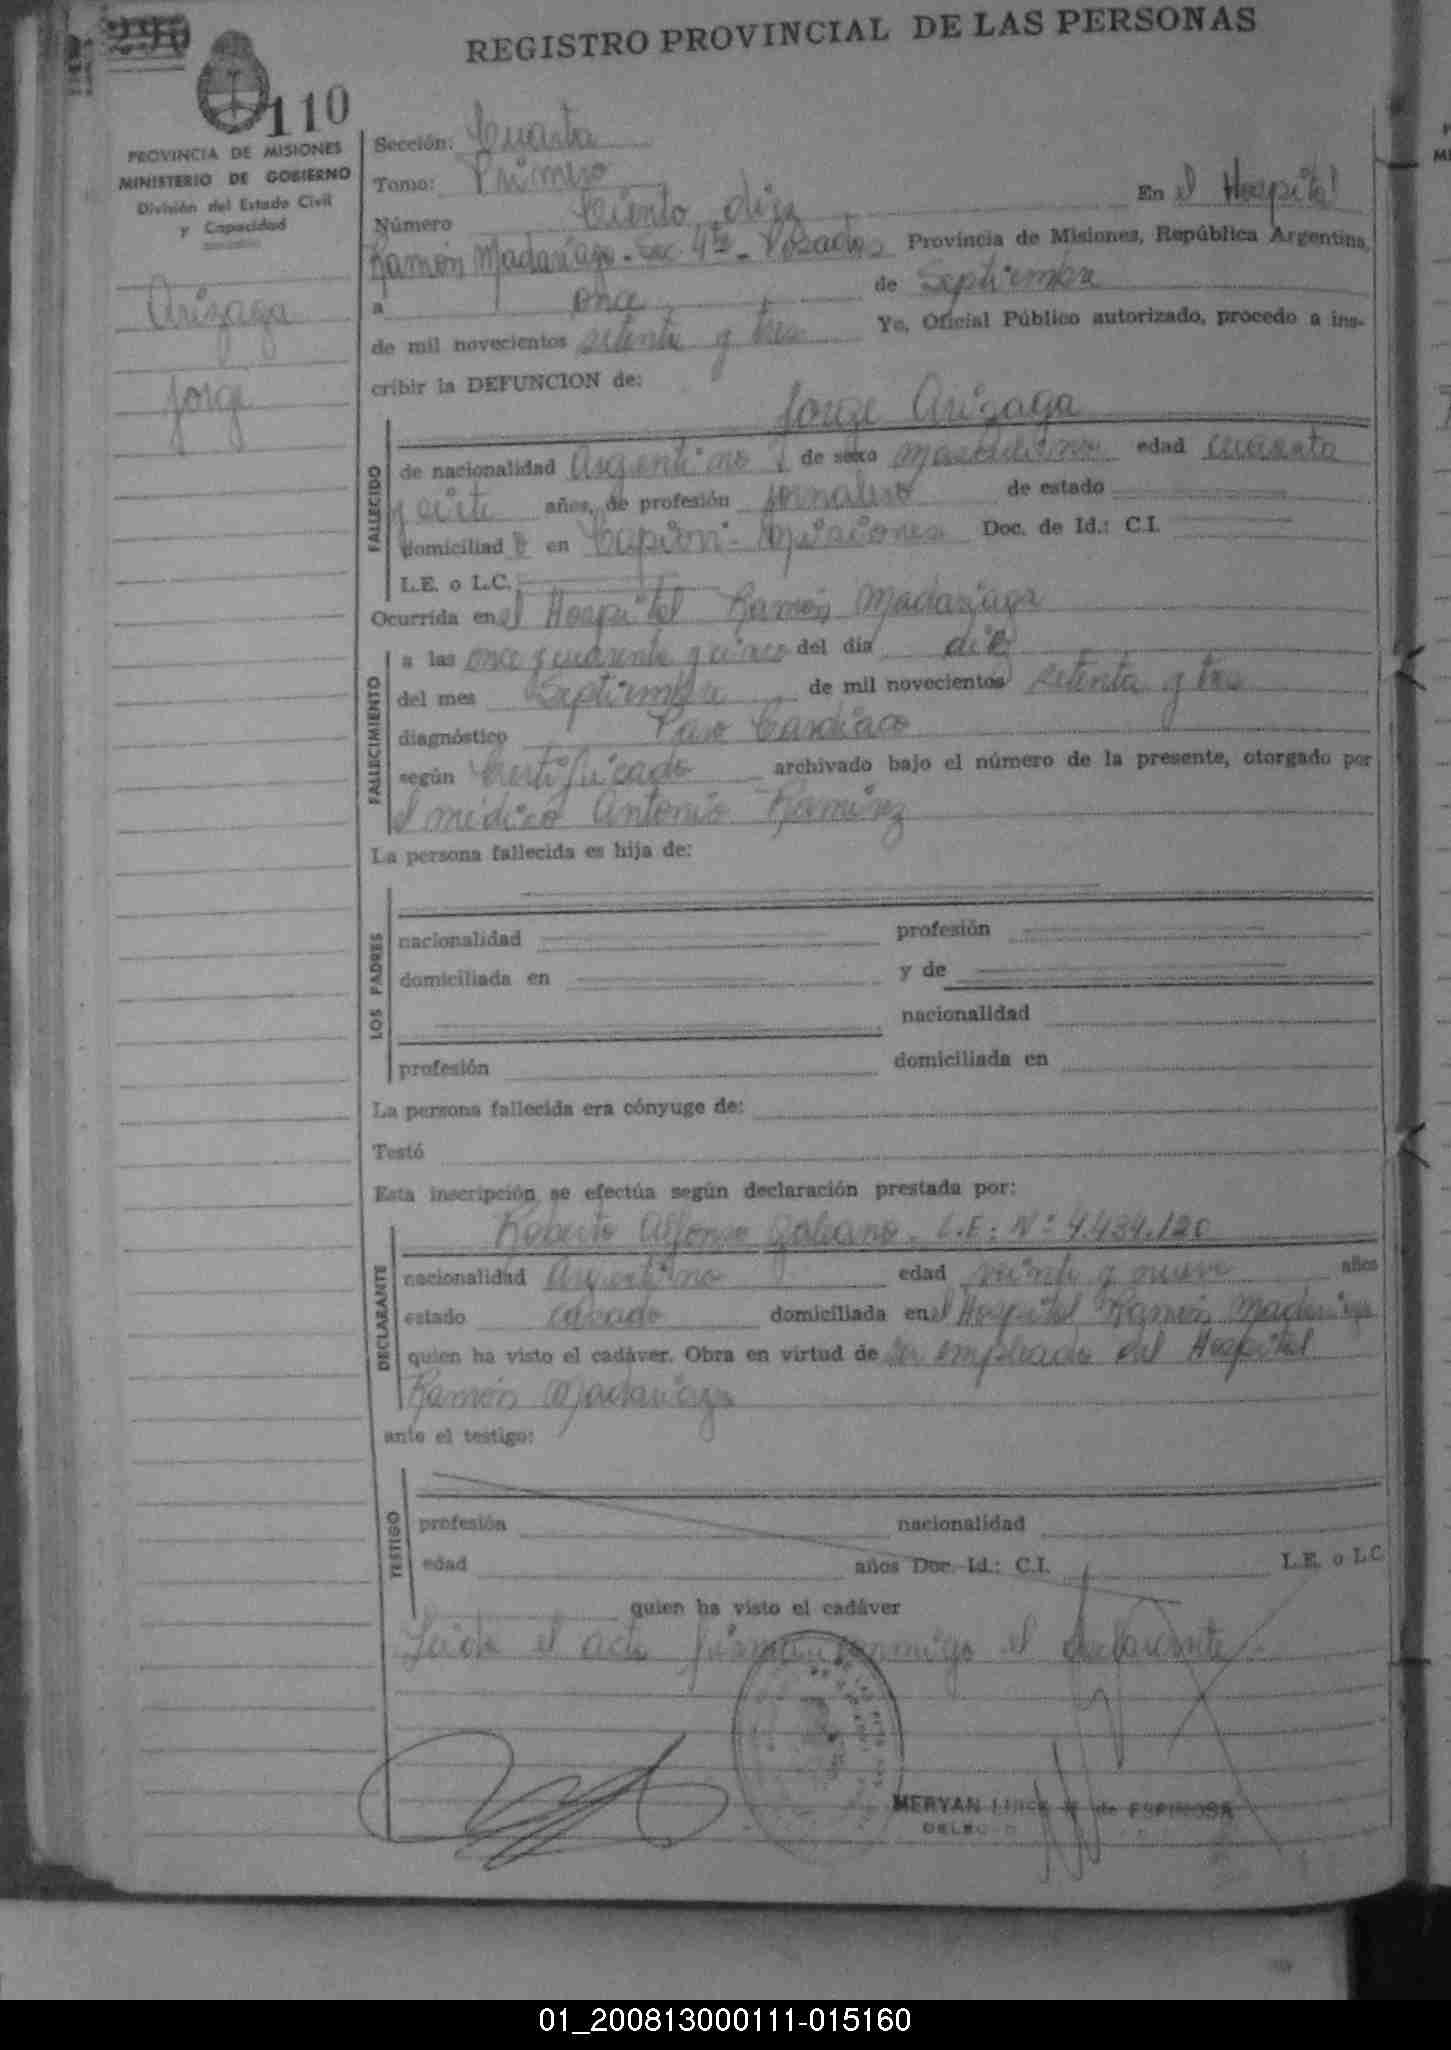 REGISTRO PROVINCIAL DE LAS PERSONAS
290
110
PROVINCIA DE MISIONES
MINISTERIO DE GOBIERNO
División del Estado Civil
y Capacidad
Arizaga
Jorge
Sección: Cuarta
Tomo: Primero
Número Ciento diez En el Hospital
Ramón Madariaga - Sec. 4ta - Posadas Provincia de Misiones, República Argentina,
a once de Septiembre
de mil novecientos setenta y tres Yo, Oficial Público autorizado, procedo a ins-
cribir la DEFUNCION de:
Jorge Arizaga
FALLECIDO
de nacionalidad Argentino de sexo masculino edad cuarenta
y siete años, de profesión jornalero de estado
domiciliado en Capioví - Misiones Doc. de Id.: C.I.
L.E. o L.C.
Ocurrida en el Hospital Ramón Madariaga
FALLECIMIENTO
a las once y cuarenta y cinco del día diez
del mes Septiembre de mil novecientos setenta y tres
diagnóstico Paro Cardíaco
según Certificado archivado bajo el número de la presente, otorgado por
el médico Antonio Ramírez
La persona fallecida es hija de:
LOS PADRES
nacionalidad profesión
domiciliada en y de
nacionalidad
profesión domiciliada en
La persona fallecida era cónyuge de:
Testó
Esta inscripción se efectúa según declaración prestada por:
DECLARANTE
Roberto Alfonso Galeano. L.E: Nº 4.434.120
nacionalidad Argentino edad veinte y nueve años
estado casado domiciliada en el Hospital Ramón Madariaga
quien ha visto el cadáver. Obra en virtud de ser empleado del Hospital
Ramón Madariaga
ante el testigo:
TESTIGO
profesión nacionalidad
edad años Doc. Id.: C.I. L.E. o L.C.
quien ha visto el cadáver
Leída el acta firman conmigo el declarante.
MERYAN de ESPINOSA
01_200813000111-015160